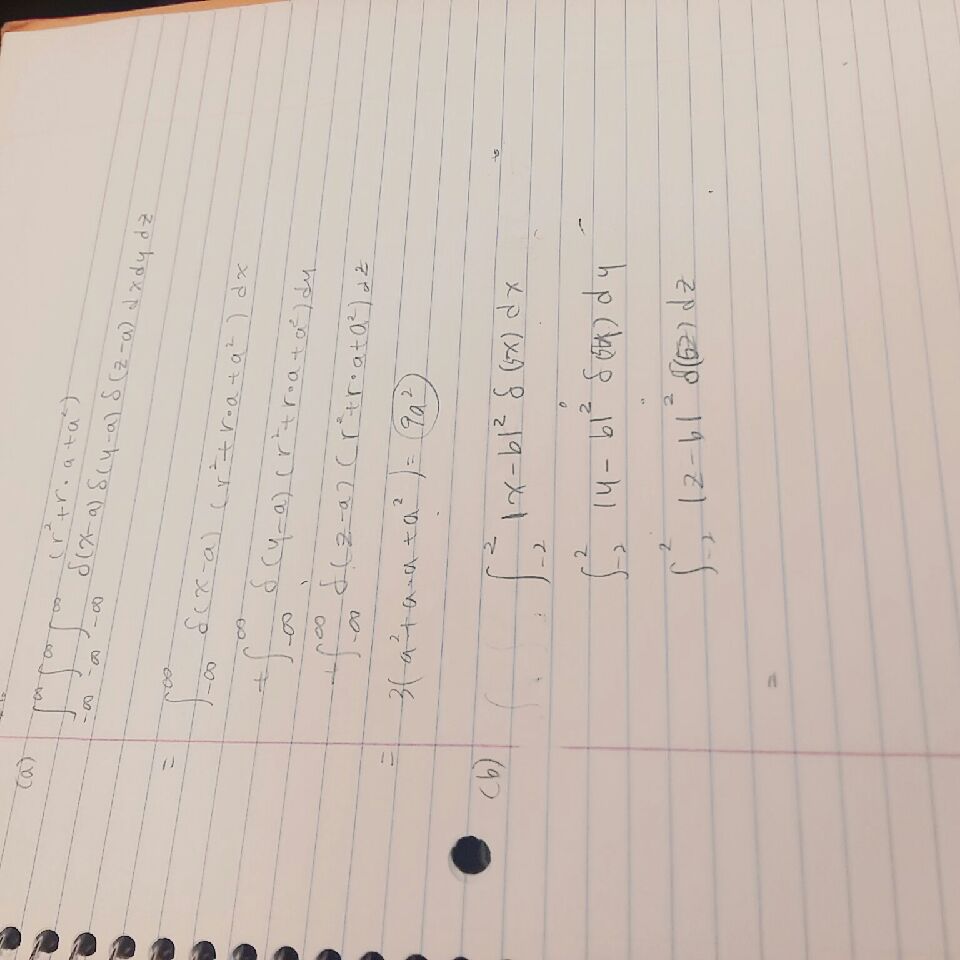 (a) ∫∫∫ (r²+r·a+a²)
-∞ -∞ -∞ δ(x-a) δ(y-a) δ(z-a) dxdydz
= ∫_{-∞}^{∞} δ(x-a) (r²+r·a+a²) dx
+ ∫_{-∞}^{∞} δ(y-a) (r²+r·a+a²) dy
+ ∫_{-∞}^{∞} δ(z-a) (r²+r·a+a²) dz
= 3(a²+a·a+a²) = 9a²
(b) ∫_{-2}^{2} |x-b|² δ(5x) dx
∫_{-2}^{2} |y-b|² δ(5y) dy
∫_{-2}^{2} |z-b|² δ(5z) dz
=